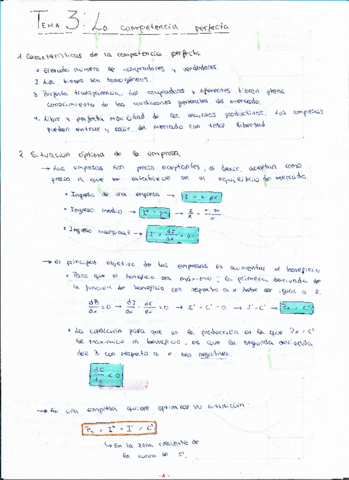 TEMA 3: La competencia perfecta
1. Características de la competencia perfecta
1. Elevado número de compradores y vendedores.
2. Los bienes son homogéneos.
3. Perfecta transparencia. Los compradores y oferentes tienen pleno
conocimiento de las condiciones generales del mercado.
4. Libre y perfecta movilidad de los recursos productivos. Las empresas
pueden entrar y salir del mercado con total libertad
2. Situación óptima de la empresa
→ Las empresas son precio aceptantes, es decir, aceptan como
precio el que se establece en el equilibrio de mercado
• Ingreso de una empresa → I = x · px
• Ingreso medio → →
• Ingreso marginal →
→ El principal objetivo de las empresas es aumentar el beneficio
• Para que el beneficio sea máximo, la primera derivada de
la función de beneficio con respecto a x debe ser igual a 0.
dB/dx = 0 → dI/dx - dC/dx = 0 → I' - C' = 0 → I' = C' → Px = C'
• La condición para que en la producción en la que Px = C'
se maximice el beneficio, es que la segunda derivada
de B con respecto a x sea negativa
→ Si una empresa quiere optimizar su situación:
= I' = C'
↳ En la zona creciente de
la curva de C'.